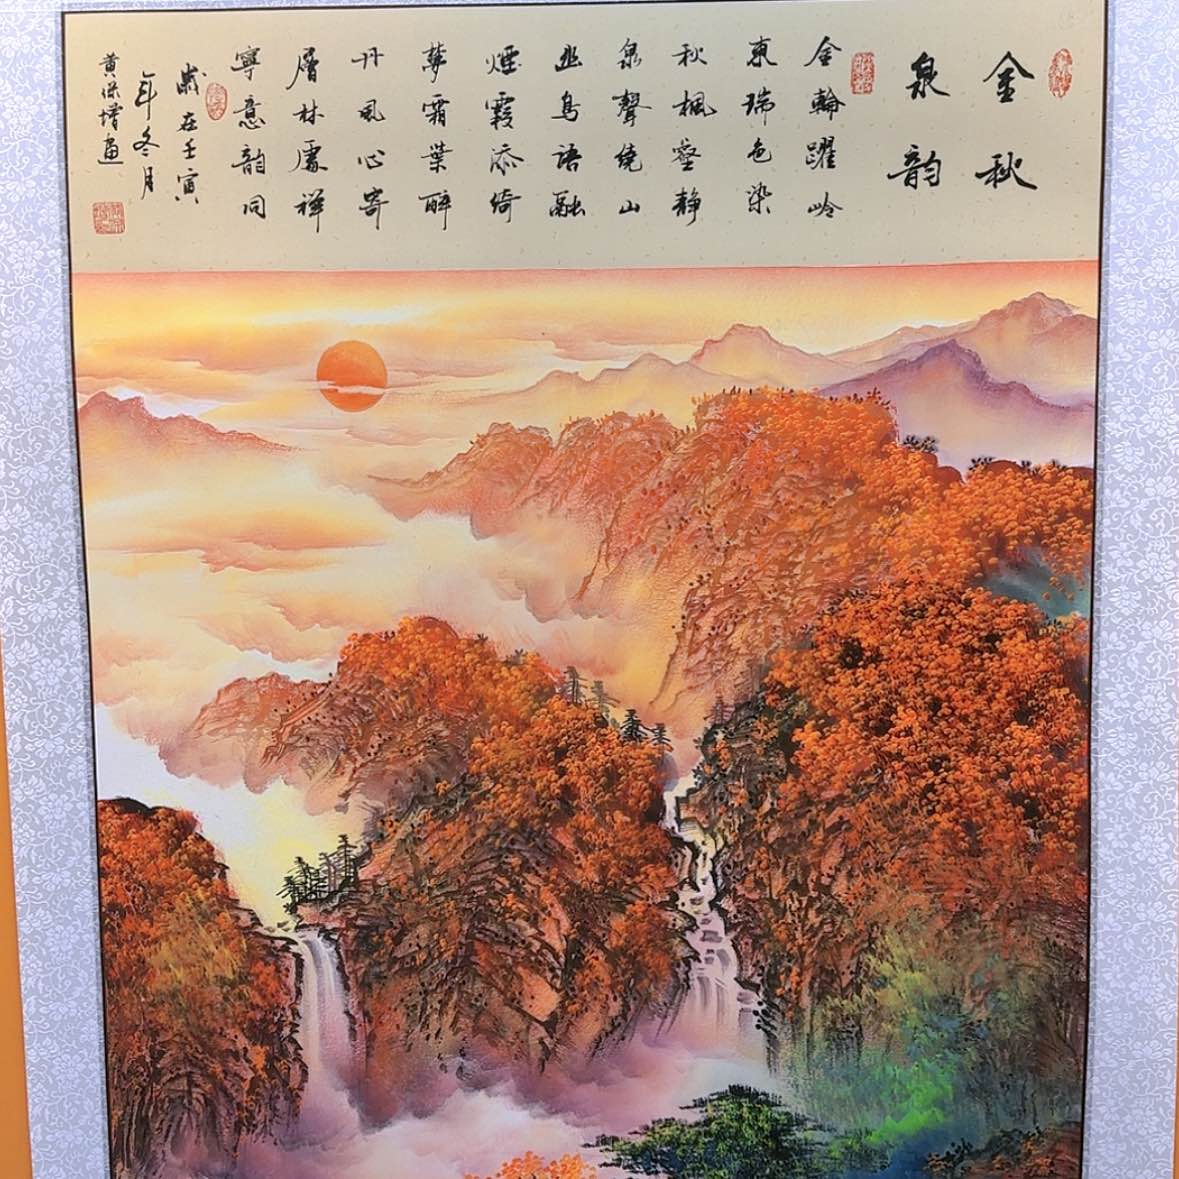 金秋
泉韵
金輪躍岭
東瑞色染
秋楓壑静
泉聲繞山
幽鳥語融
煙霞添綺
夢霜葉醉
丹風心寄
層林處禅
寧意韵同
歲在壬寅
年冬月
黄保增画